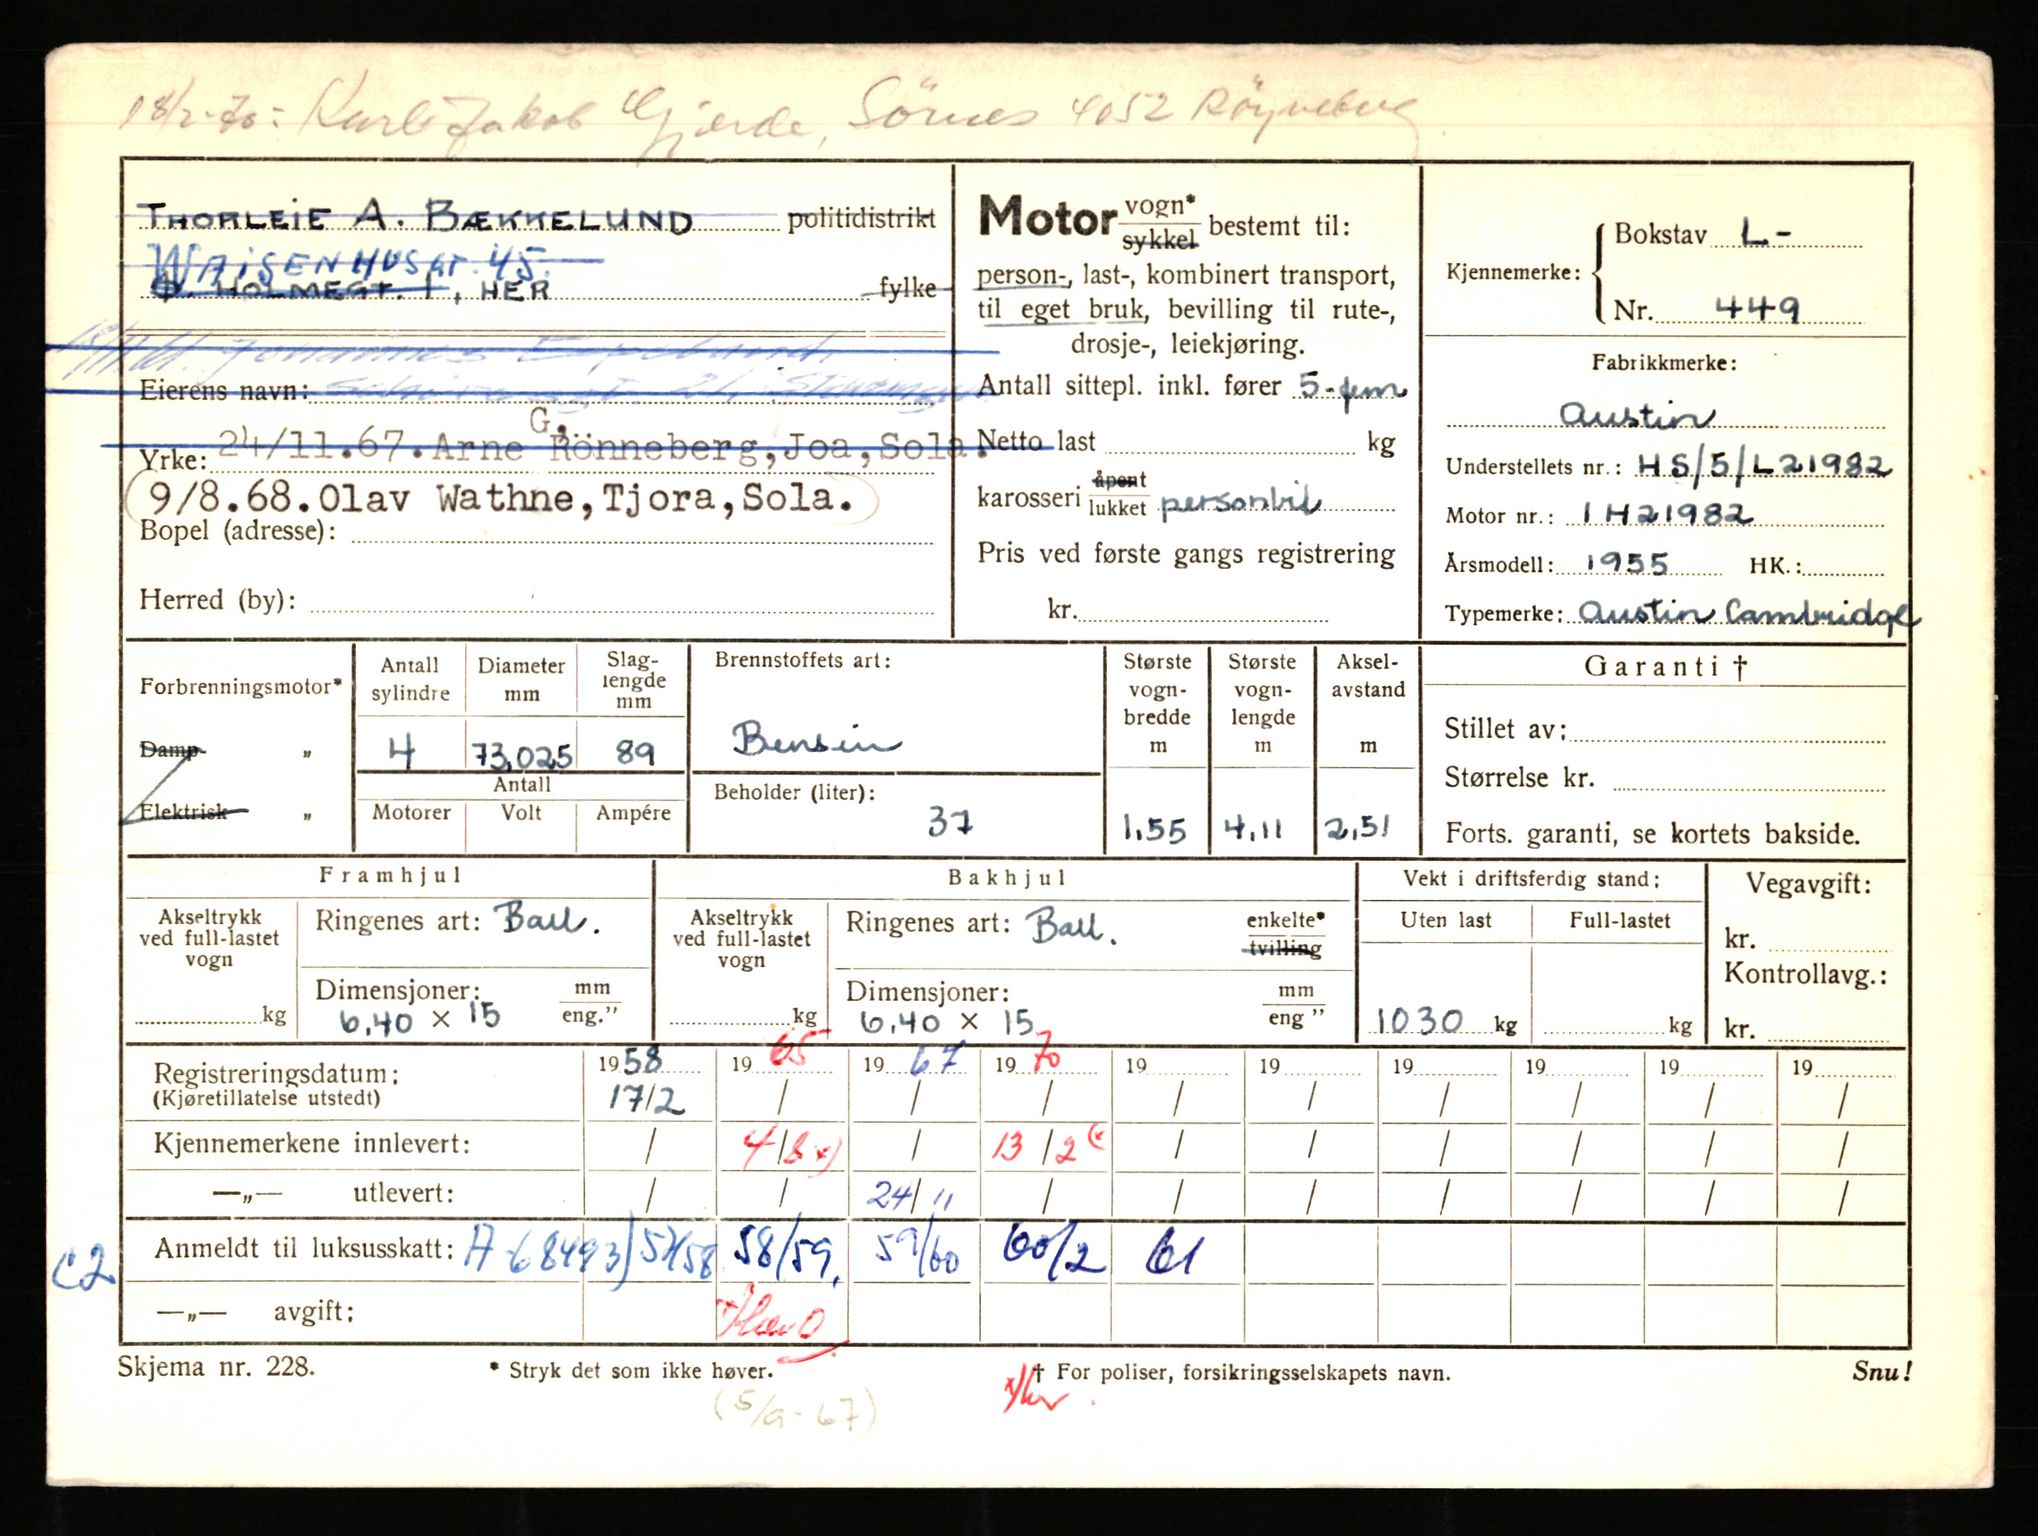 18/2-70: Karl Jakob Gjerde, Sörnes 4052 Röyneberg
THORLEIF A. BÆKKELUND politidistrikt
WAISENHUSGT. 45.
HOLMEGT. 1, HER fylke
Johannes
Eierens navn: 21, Stavanger
24/11.67. Arne G. Rönneberg, Joa, Sola.
Yrke:
9/8.68. Olav Wathne, Tjora, Sola.
Bopel (adresse):
Herred (by):
Motor vogn* sykkel bestemt til:
person-, last-, kombinert transport,
til eget bruk, bevilling til rute-,
drosje-, leiekjøring.
Antall sittepl. inkl. fører 5-fem
Netto last kg
karosseri åpent lukket personbil
Pris ved første gangs registrering
kr.
Kjennemerke: { Bokstav L-
Nr. 449
Fabrikkmerke:
Austin
Understellets nr.: HS/5/L21982
Motor nr.: 1H21982
Årsmodell: 1955 HK.:
Typemerke: Austin Cambridge
Forbrenningsmotor*
Damp „
Elektrisk „
Antall sylindre 4
Diameter mm 73,025
Slaglengde mm 89
Antall
Motorer Volt Ampére
Brennstoffets art:
Bensin
Beholder (liter):
37
Største vogn-bredde m 1,55
Største vogn-lengde m 4,11
Aksel-avstand m 2,51
Garanti †
Stillet av:
Størrelse kr.
Forts. garanti, se kortets bakside.
Framhjul
Akseltrykk ved full-lastet vogn kg
Ringenes art: Ball.
Dimensjoner: mm eng."
6.40 × 15
Bakhjul
Akseltrykk ved full-lastet vogn kg
Ringenes art: Ball. enkelte* tvilling
Dimensjoner: mm eng "
6.40 × 15
Vekt i driftsferdig stand:
Uten last Full-lastet
1030 kg kg
Vegavgift:
kr.
Kontrollavg.:
kr.
Registreringsdatum: 1958 1965 1967 1970 19 19 19 19 19 19
(Kjøretillatelse utstedt) 17/2 / / / / / / / / /
Kjennemerkene innlevert: / 4/8 x) / 13/2 (x / / / / / /
—„— utlevert: / / 24/11 / / / / / / /
C2 Anmeldt til luksusskatt: A-68493) 57/58 58/59. 59/60 60/2 61
—„— avgift:
Skjema nr. 228. * Stryk det som ikke høver. † For poliser, forsikringsselskapets navn. Snu!
(5/9-67)